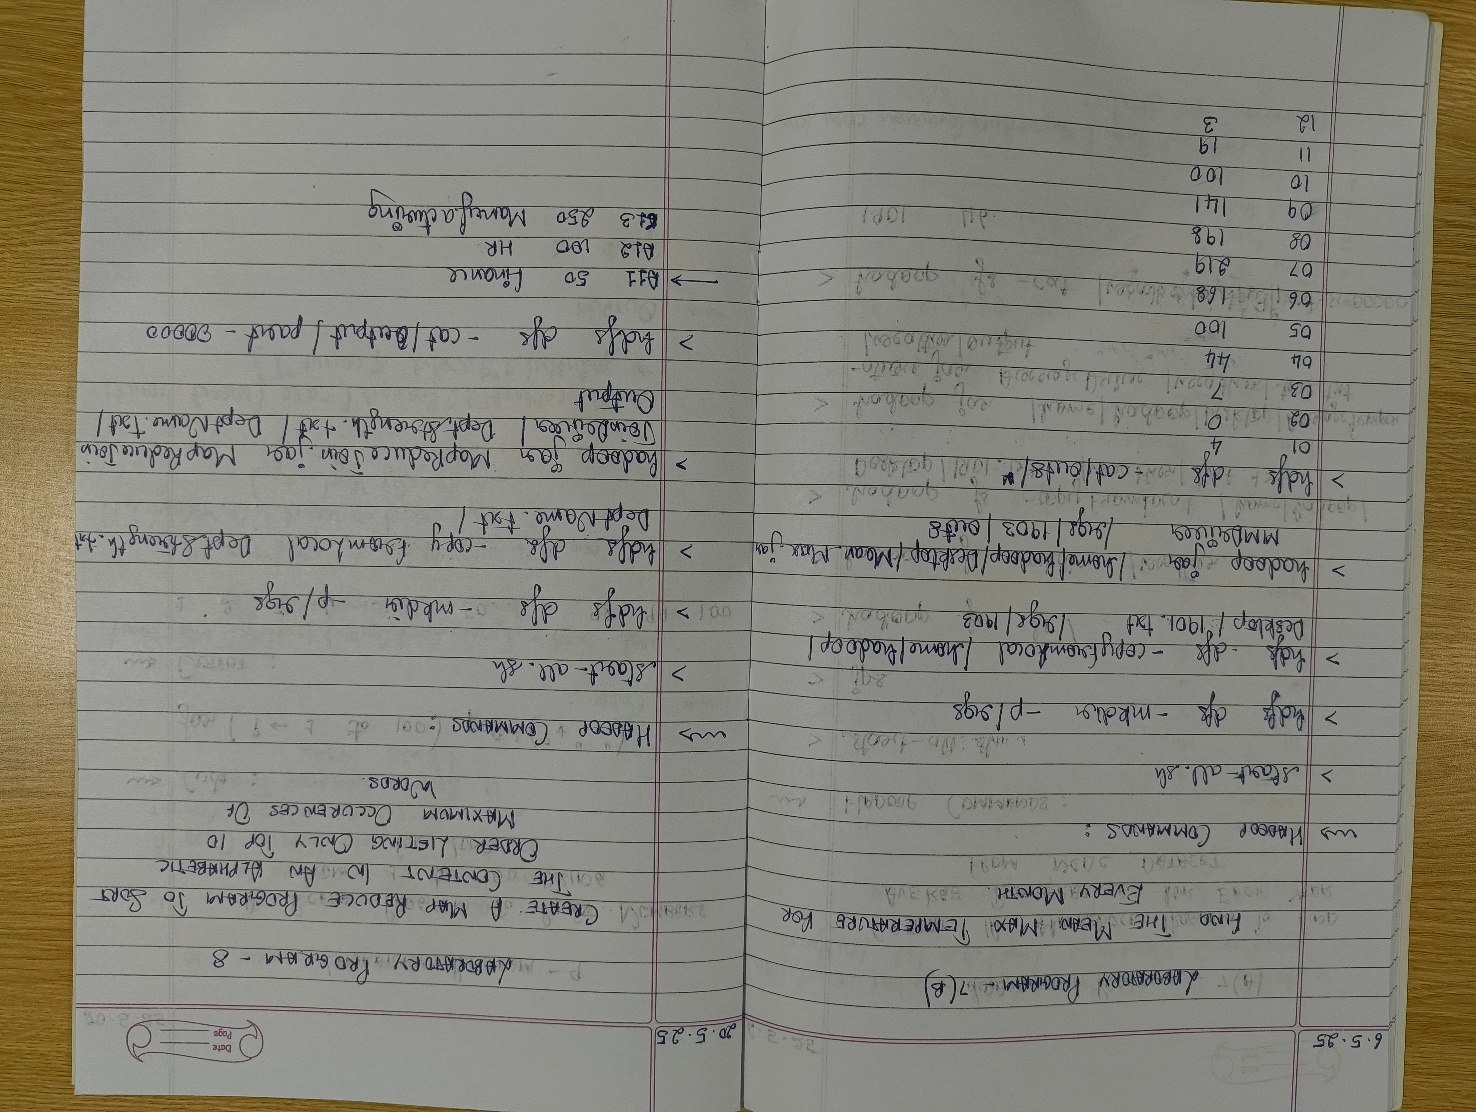 6.5.25
LABORATORY PROGRAM - 7(B)
FIND THE MEAN MAX TEMPERATURE FOR
EVERY MONTH
HADOOP COMMANDS :
> start-all.sh
> hdfs dfs -mkdir -p /sigs
> hdfs dfs -copyfromlocal /home/hadoop/
Desktop/1901.txt /sigs/1903
> hadoop jar /home/hadoop/Desktop/Mean Max.jar
MMDriver /sigs/1903/out8
> hdfs dfs -cat/out8/*
01 4
02 0
03 7
04 44
05 100
06 168
07 219
08 198
09 141
10 100
11 19
12 3
Date
Page
20.5.25
LABORATORY PROGRAM - 8
CREATE A MAP REDUCE PROGRAM TO SORT
THE CONTENT IN AN ALPHABETIC
ORDER LISTING ONLY TOP 10
MAXIMUM OCCURENCES OF
WORDS.
HADOOP COMMANDS :
> start-all.sh
> hdfs dfs -mkdir -p/sigs
> hdfs dfs -copy fromlocal DeptStrength.txt
DeptName.txt /
> hadoop jar MapReduceJoin.jar MapReduceJoin
JoinDriver/ DeptStrength.txt/ DeptName.txt/
Output
> hdfs dfs -cat/Output/ part-00000
→ A11 50 Finance
A12 100 HR
A13 250 Manufacturing